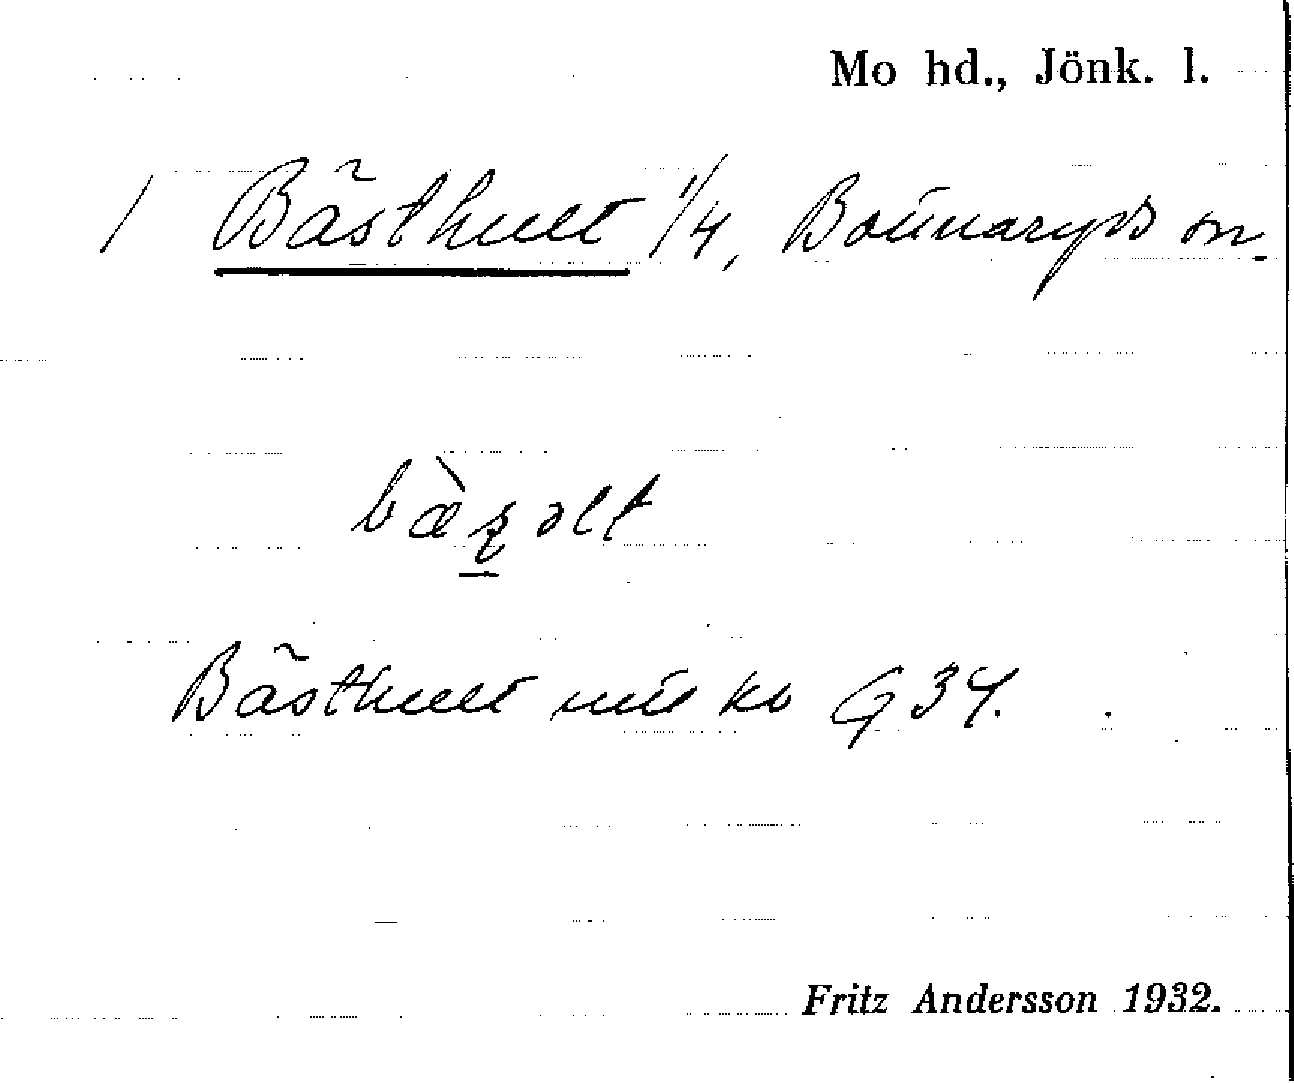 Mo hd., Jönk. l.
1 Bästhult 1/4, Bottnaryds sn
Bästhult mtl ko G 34.
Fritz Andersson 1932.